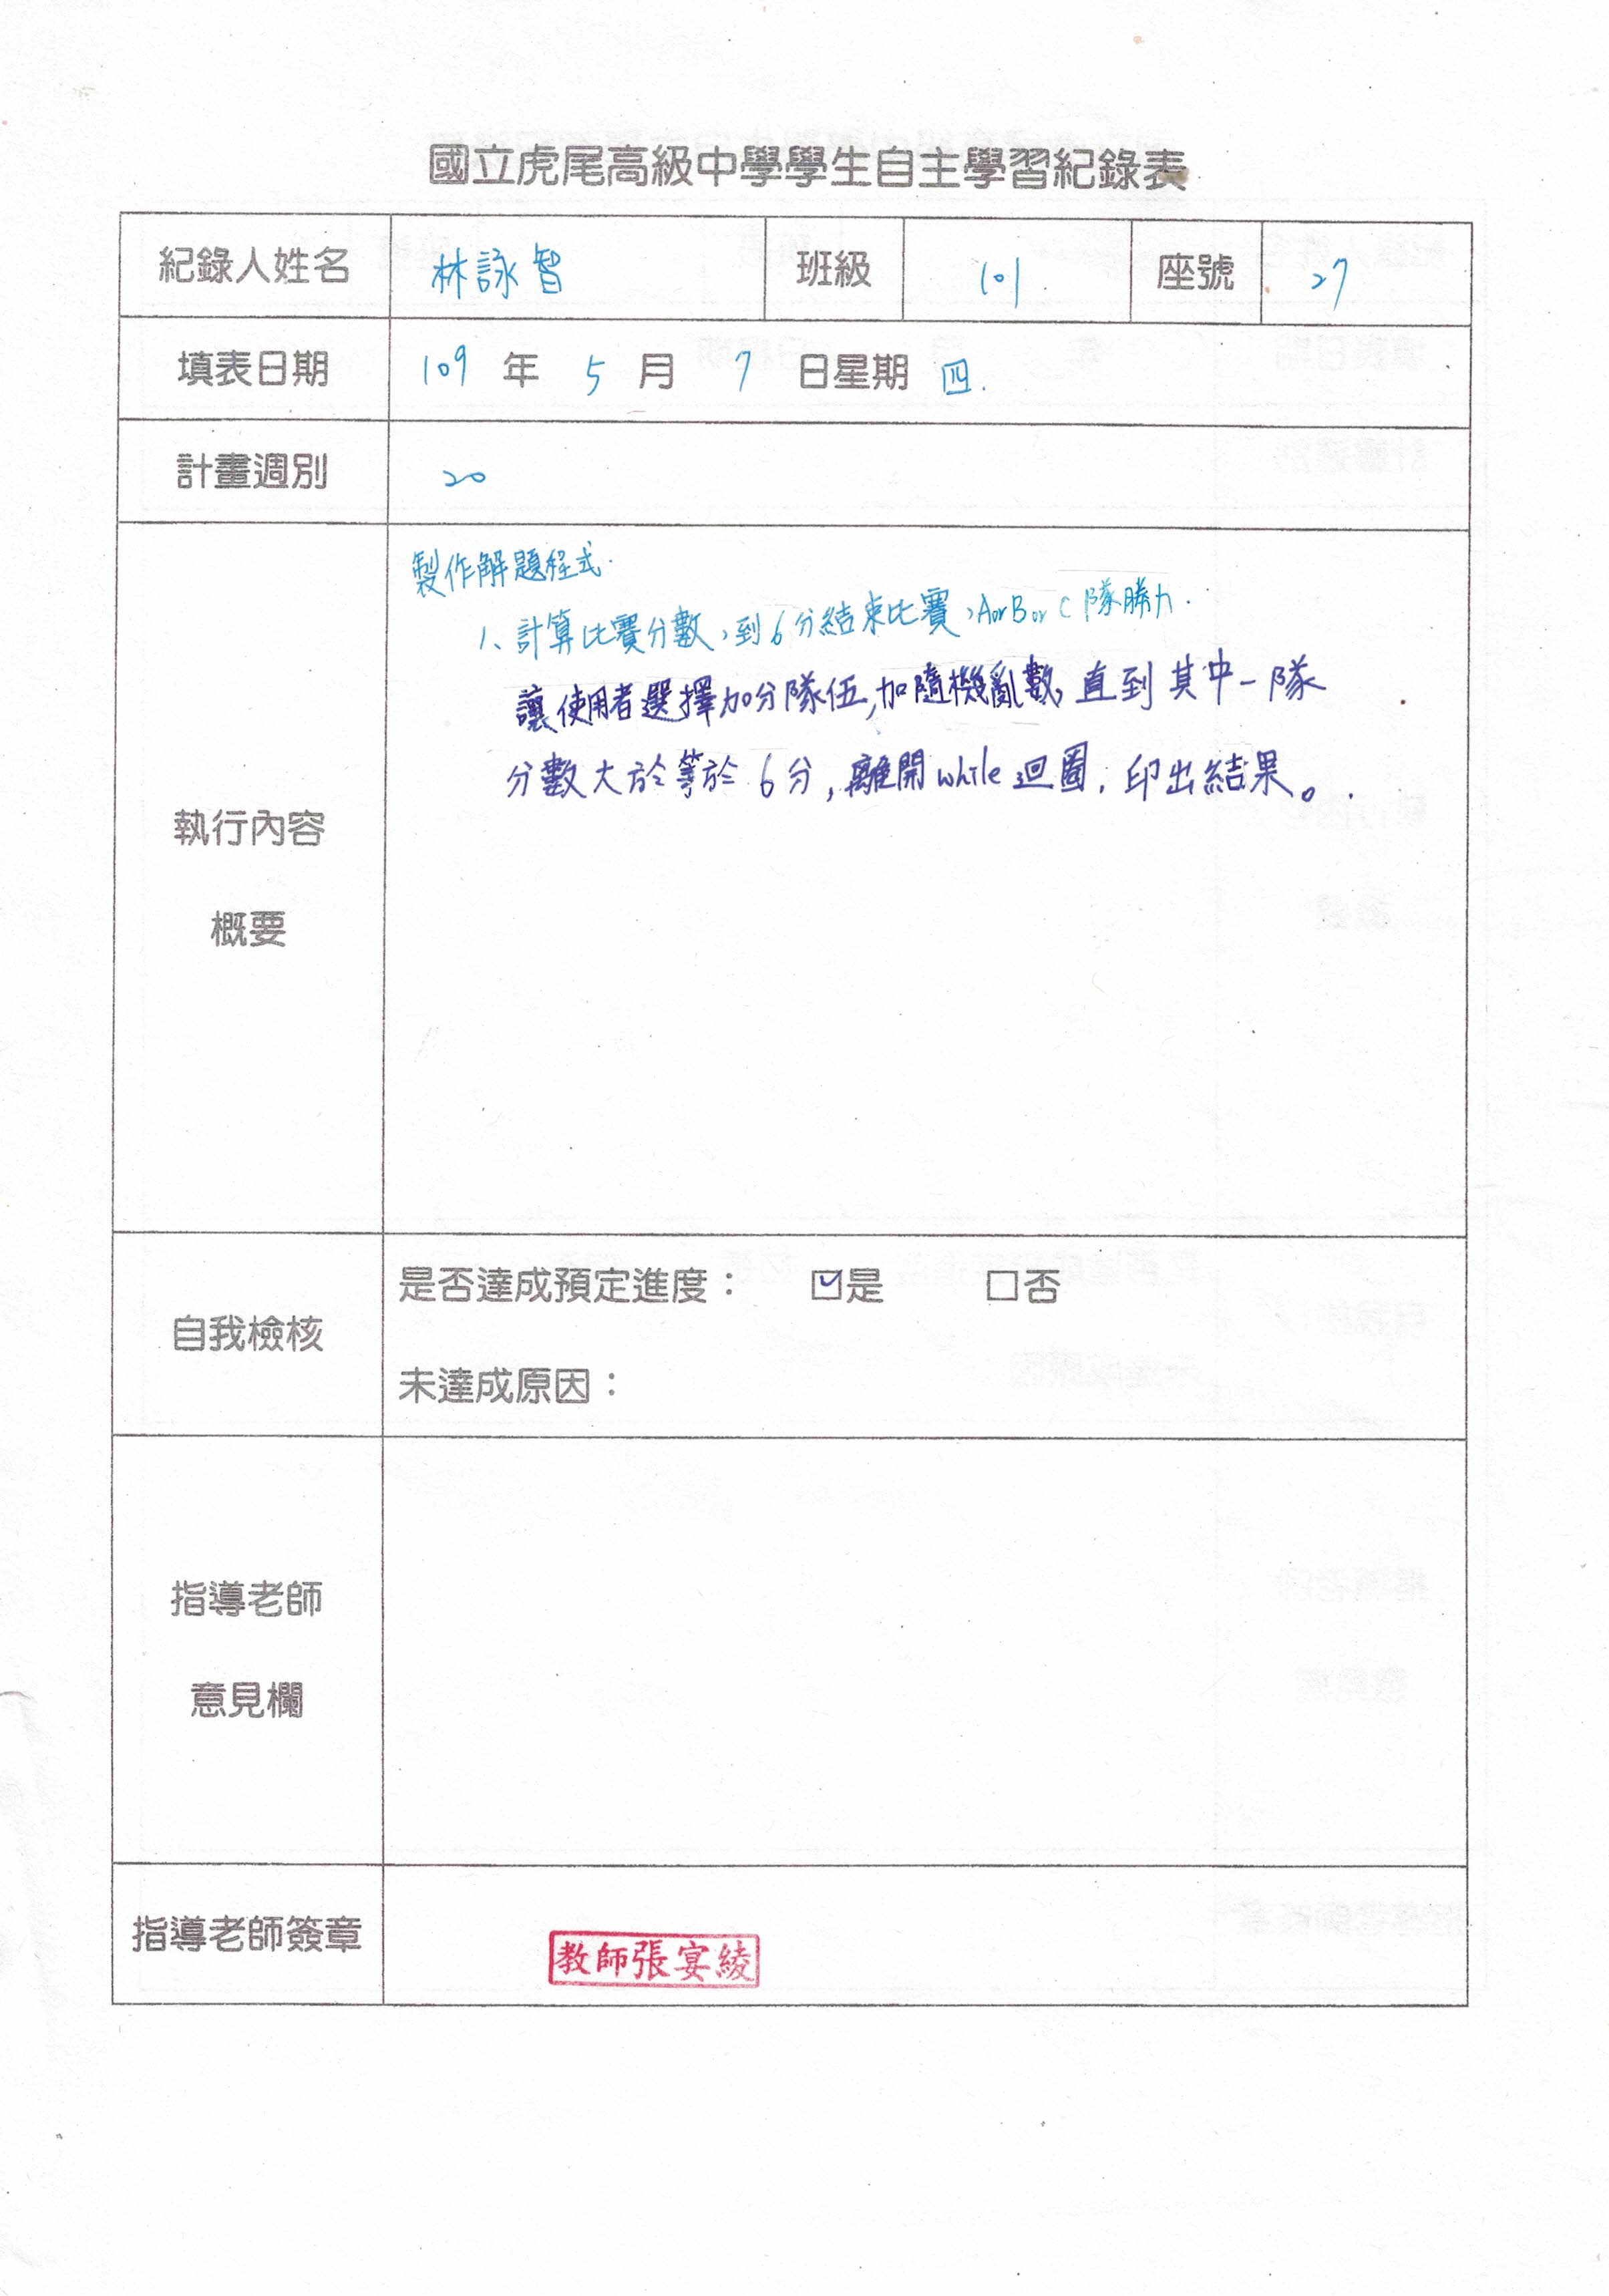 國立虎尾高級中學學生自主學習紀錄表
紀錄人姓名 林詠智 班級 101 座號 27
填表日期 109 年 5 月 7 日星期 四.
計畫週別 20
製作解題程式.
1、計算比賽分數,到6分結束比賽,AorBorC隊勝力.
讓使用者選擇加分隊伍,加隨機亂數,直到其中一隊
分數大於等於6分,離開while迴圈,印出結果。.
執行內容
概要
是否達成預定進度： ☑是 □否
自我檢核
未達成原因：
指導老師
意見欄
指導老師簽章 教師張宴綾